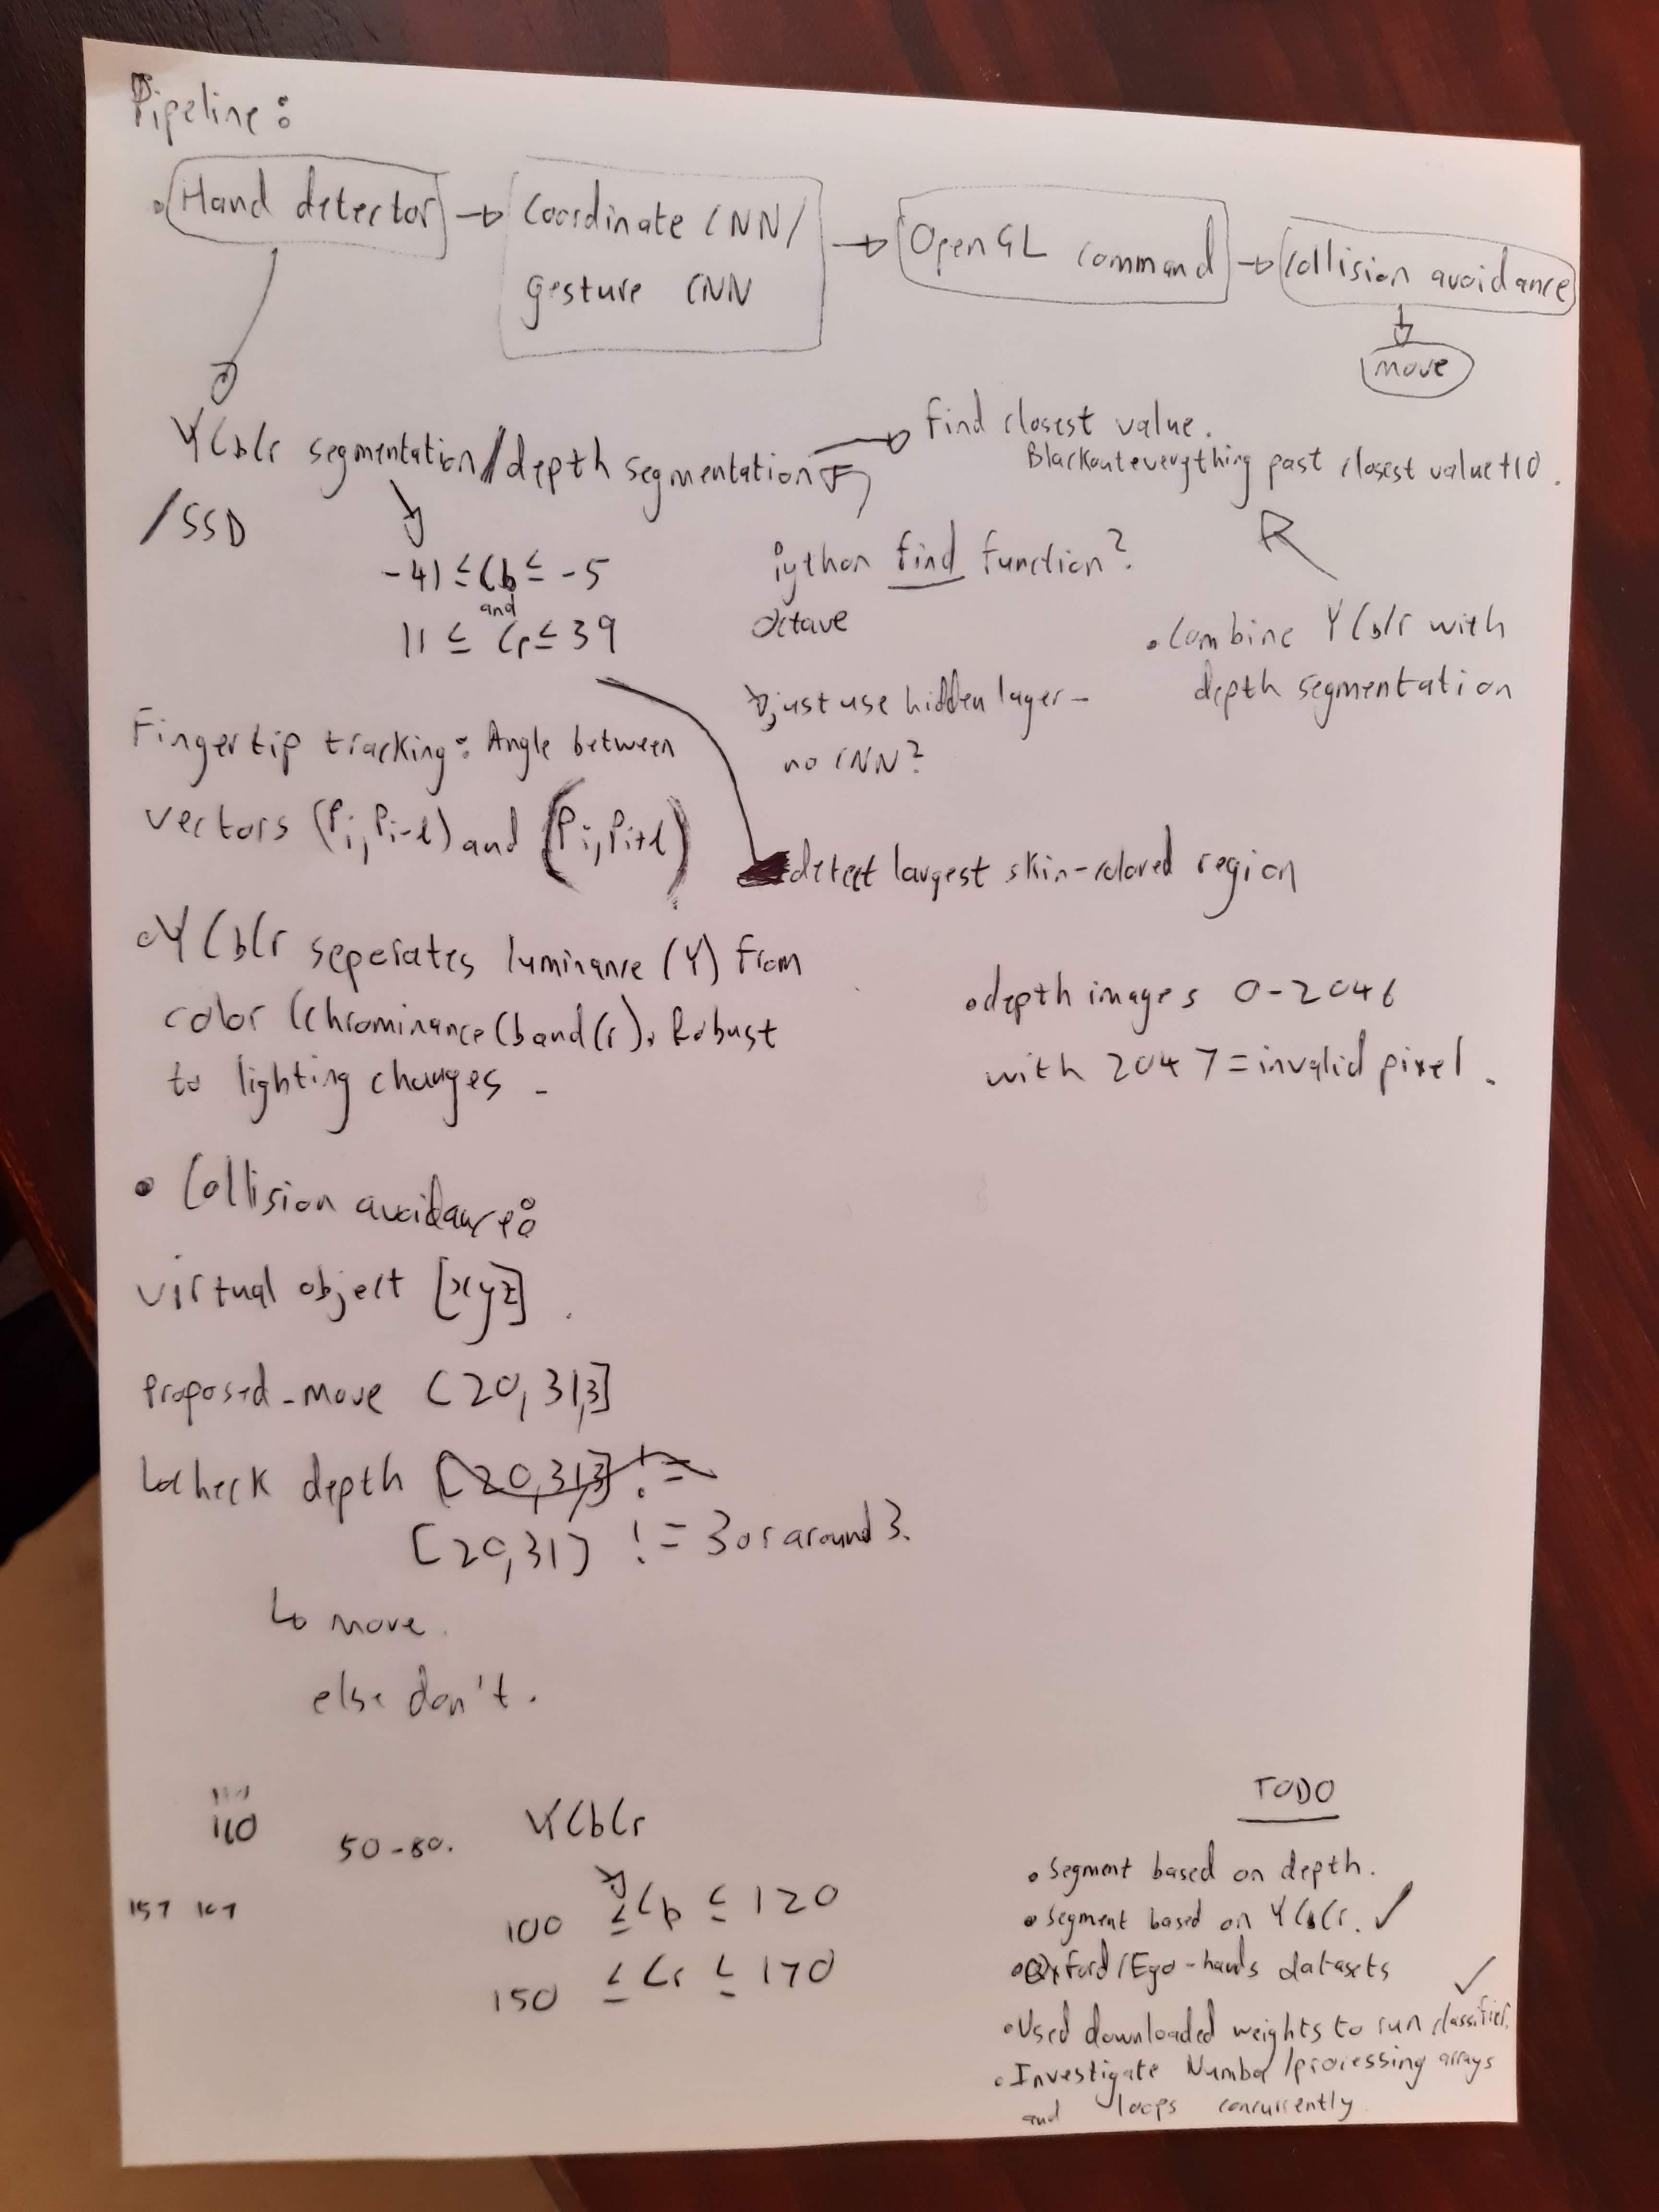 Pipeline:
Hand detector → Coordinate CNN/
gesture CNN
→ OpenGL command → Collision avoidance
move
YCbCr segmentation/depth segmentation
/SSD
→ Find closest value.
Blackout everything past closest value +10.
-41 ≤ Cb ≤ -5
and
11 ≤ Cr ≤ 39
Python find function?
Octave
• Combine YCbCr with
depth segmentation
just use hidden layer -
no CNN?
Fingertip tracking: Angle between
vectors (Pi, Pi-l) and (Pi, Pi+l)
detect largest skin-colored region
• YCbCr seperates luminance (Y) from
color (chrominance Cb and Cr). Robust
to lighting changes -
• depth images 0-2046
with 2047 = invalid pixel.
• Collision avoidance:
virtual object [xyz]
proposed_move [20,31,3]
↳ check depth [20,31,3] !=
[20,31] != 3 or around 3.
↳ move.
else don't.
110
50-80.
YCbCr
100 ≤ Cb ≤ 120
150 ≤ Cr ≤ 170
157
TODO
• Segment based on depth.
• Segment based on YCbCr. ✓
• Oxford/Ego-hands datasets
• Used downloaded weights to run classifier. ✓
• Investigate Numba/processing arrays
and loops concurrently